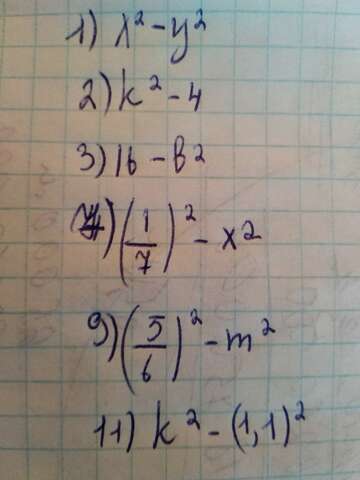 1) x² - y²
2) k² - 4
3) 16 - b²
) (1/7)² - x²
9) (5/6)² - m²
11) k² - (1,1)²